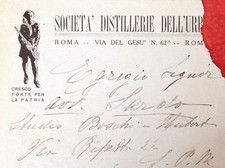 SOCIETA' DISTILLERIE DELL'URE
ROMA - VIA DEL GESU' N. 62A - ROM
CRESCO
FORTE PER
LA PATRIA
Egregio Signor
avv.
Studio
Via Ripetta 22
S.P.M.